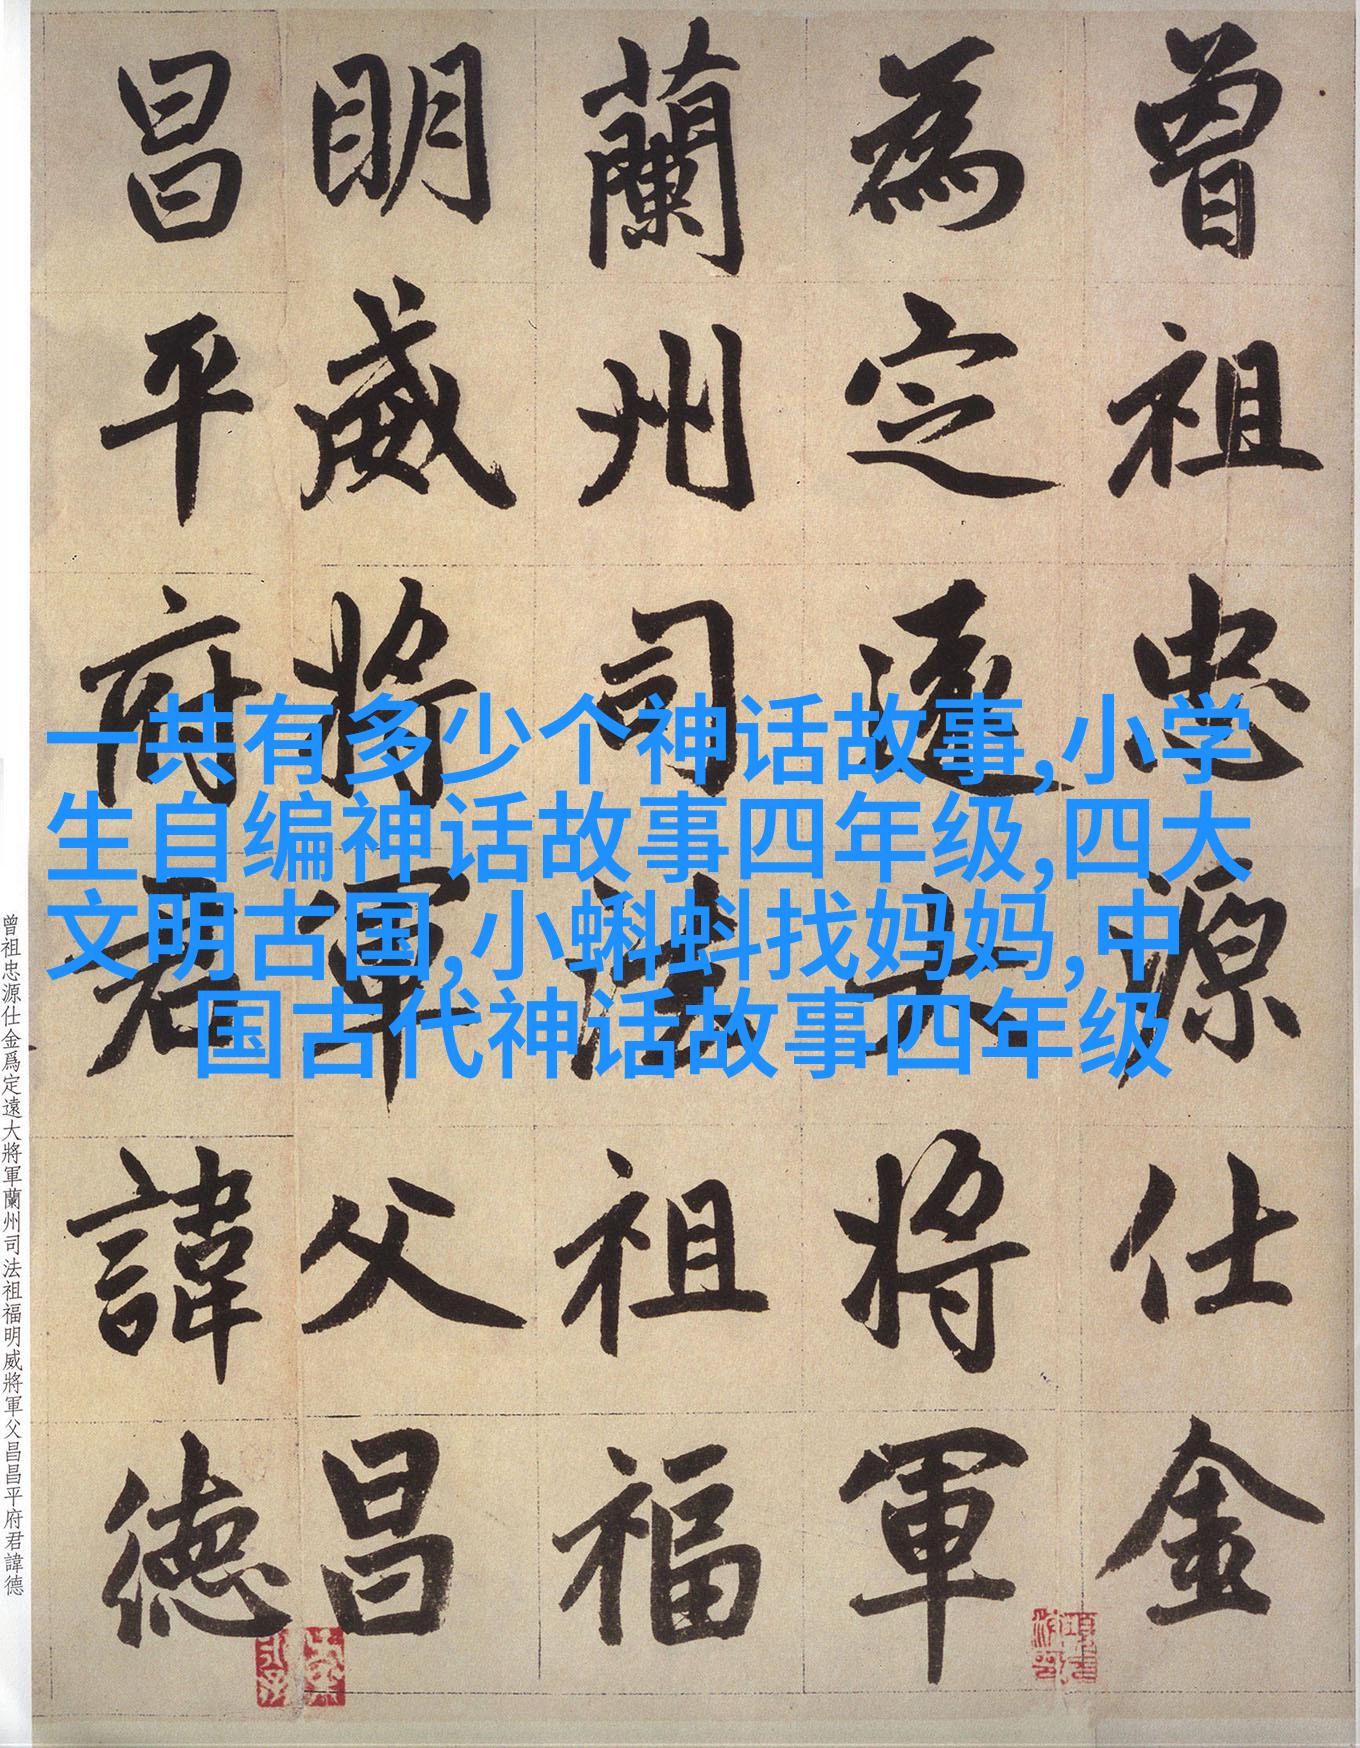 曾祖忠源仕金
為定遠大將軍
蘭州司法祖福
明威將軍父昌
昌平府君諱德
一共有多少个神话故事,小学
生自编神话故事四年级,四大
文明古国,小蝌蚪找妈妈,中
国古代神话故事四年级
曾祖忠源仕金爲定遠大將軍蘭州司法祖福明威將軍父昌昌平府君諱德